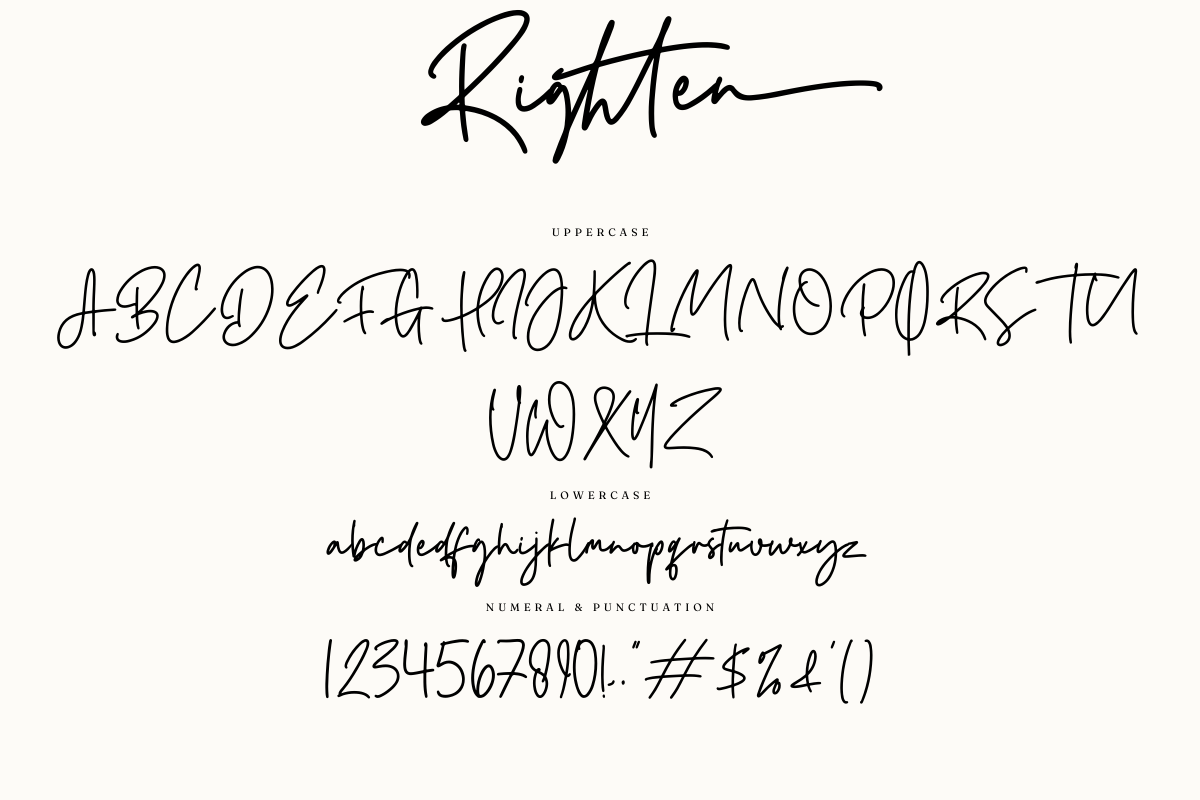 Righten
UPPERCASE
ABCDEFGHIJKLMNOPQRSTU
VWXYZ
LOWERCASE
abcdedfghijklmnopqrstuvwxyz
NUMERAL & PUNCTUATION
1234567890!..“#$%&'()